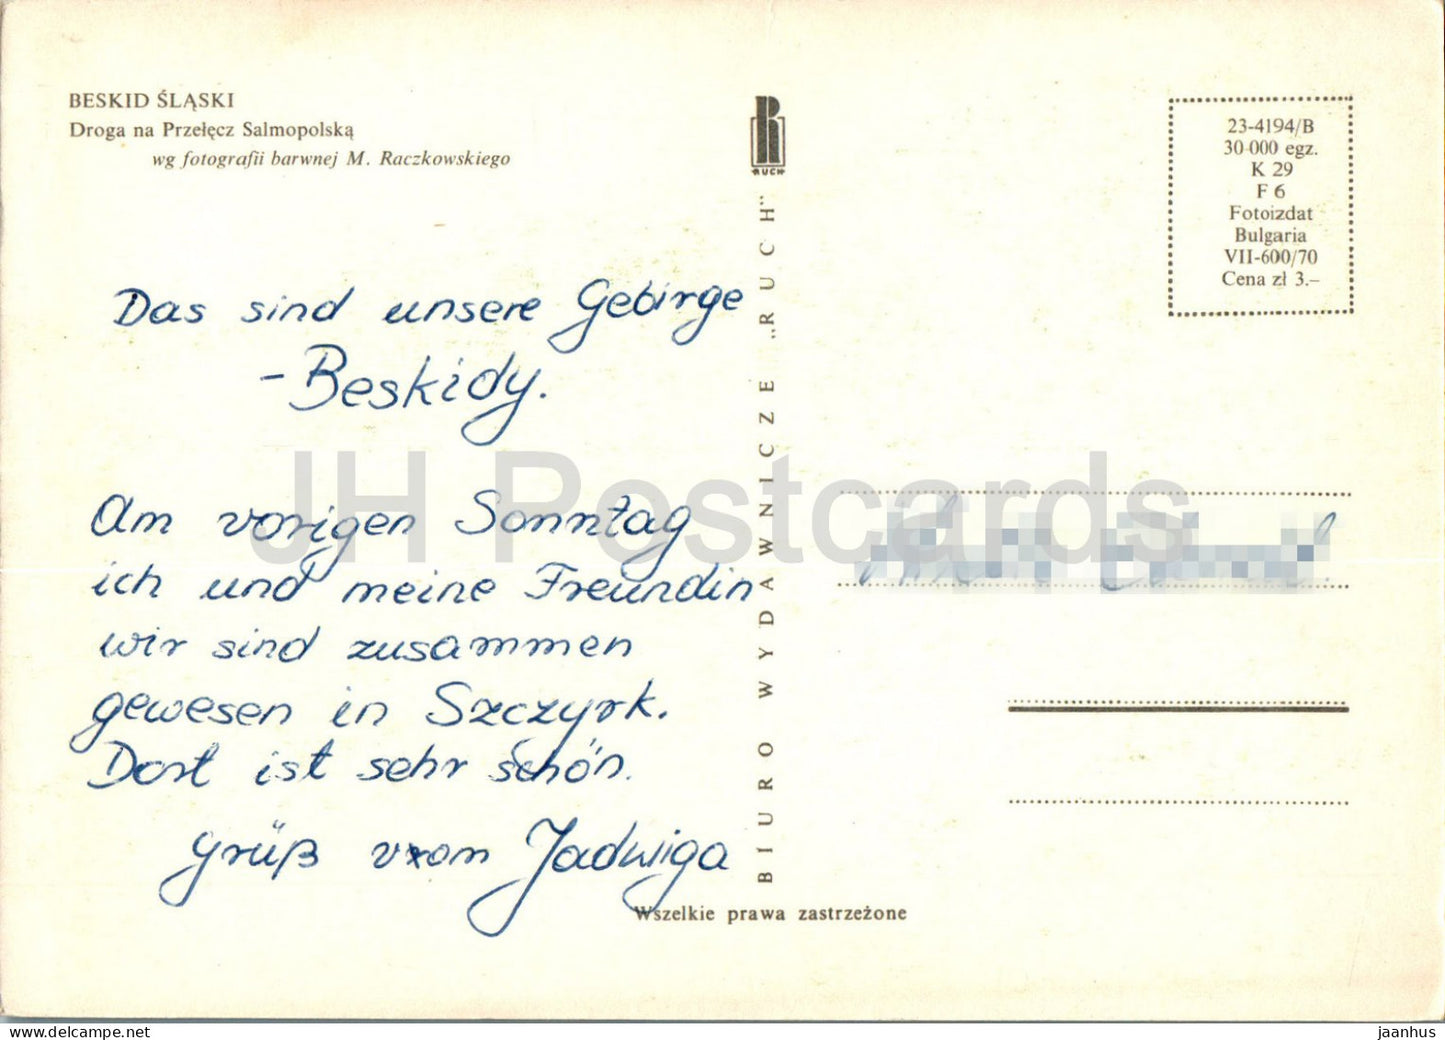 BESKID ŚLĄSKI
Droga na Przełęcz Salmopolską
wg fotografii barwnej M. Raczkowskiego
RUCH
23-4194/B
30 000 egz.
K 29
F 6
Fotoizdat
Bulgaria
VII-600/70
Cena zł 3.–
Das sind unsere Gebirge
– Beskidy.
Am vorigen Sonntag
ich und meine Freundin
wir sind zusammen
gewesen in Szczyrk.
Dort ist sehr schön.
Grüß von Jadwiga
BIURO WYDAWNICZE „RUCH"
Wszelkie prawa zastrzeżone
JH Postcards
delcampe.net
jaanhus